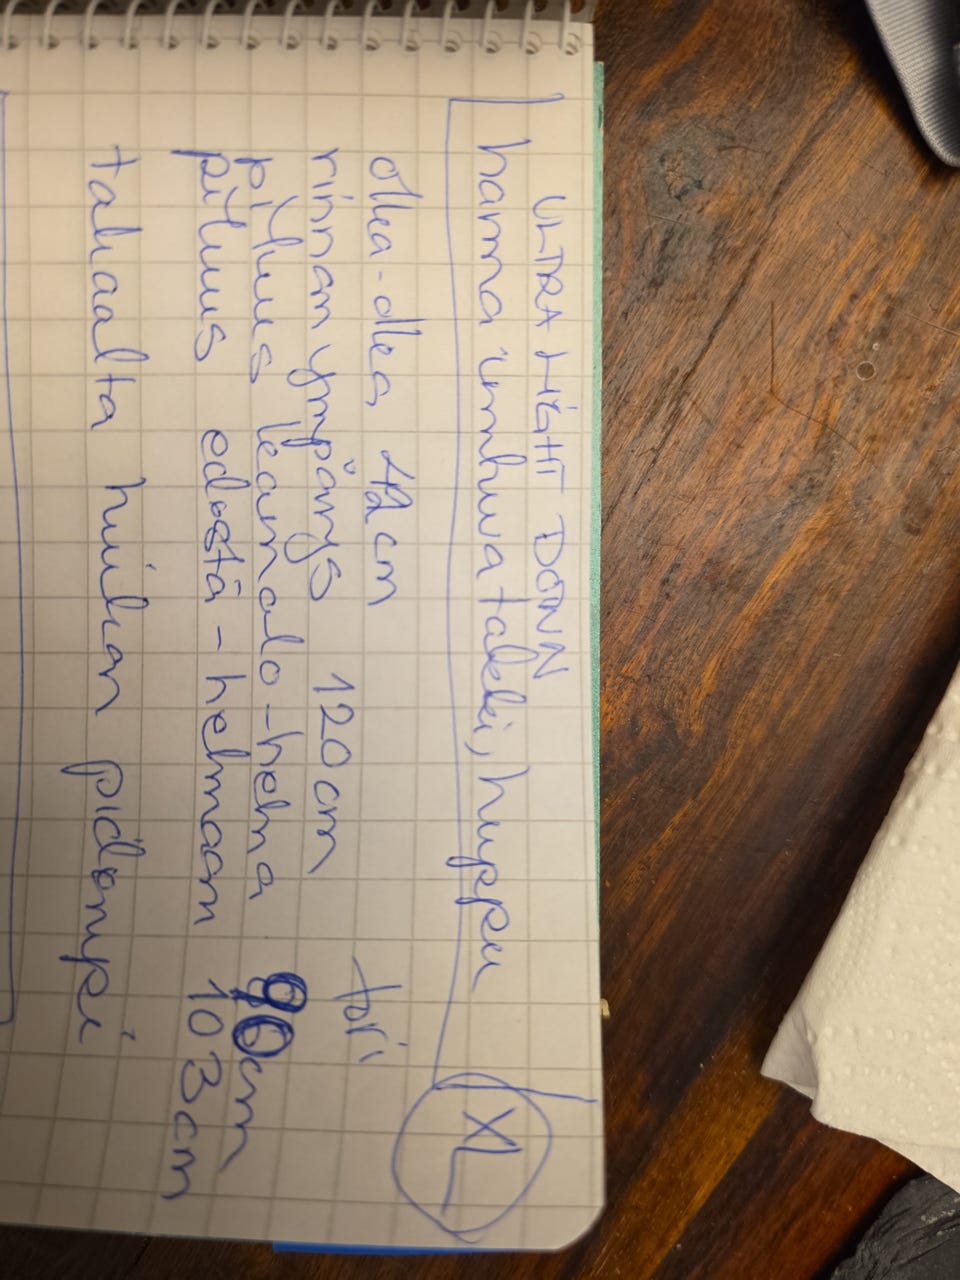 ULTRA LIGHT DOWN
harma untuva takki, huppu
XL
olka-olka 42cm
tori
rinnan ympärys 120cm
pituus kainalo-helma 96cm
pituus edestä - helmaan 103cm
takaalta hiukan pidempi